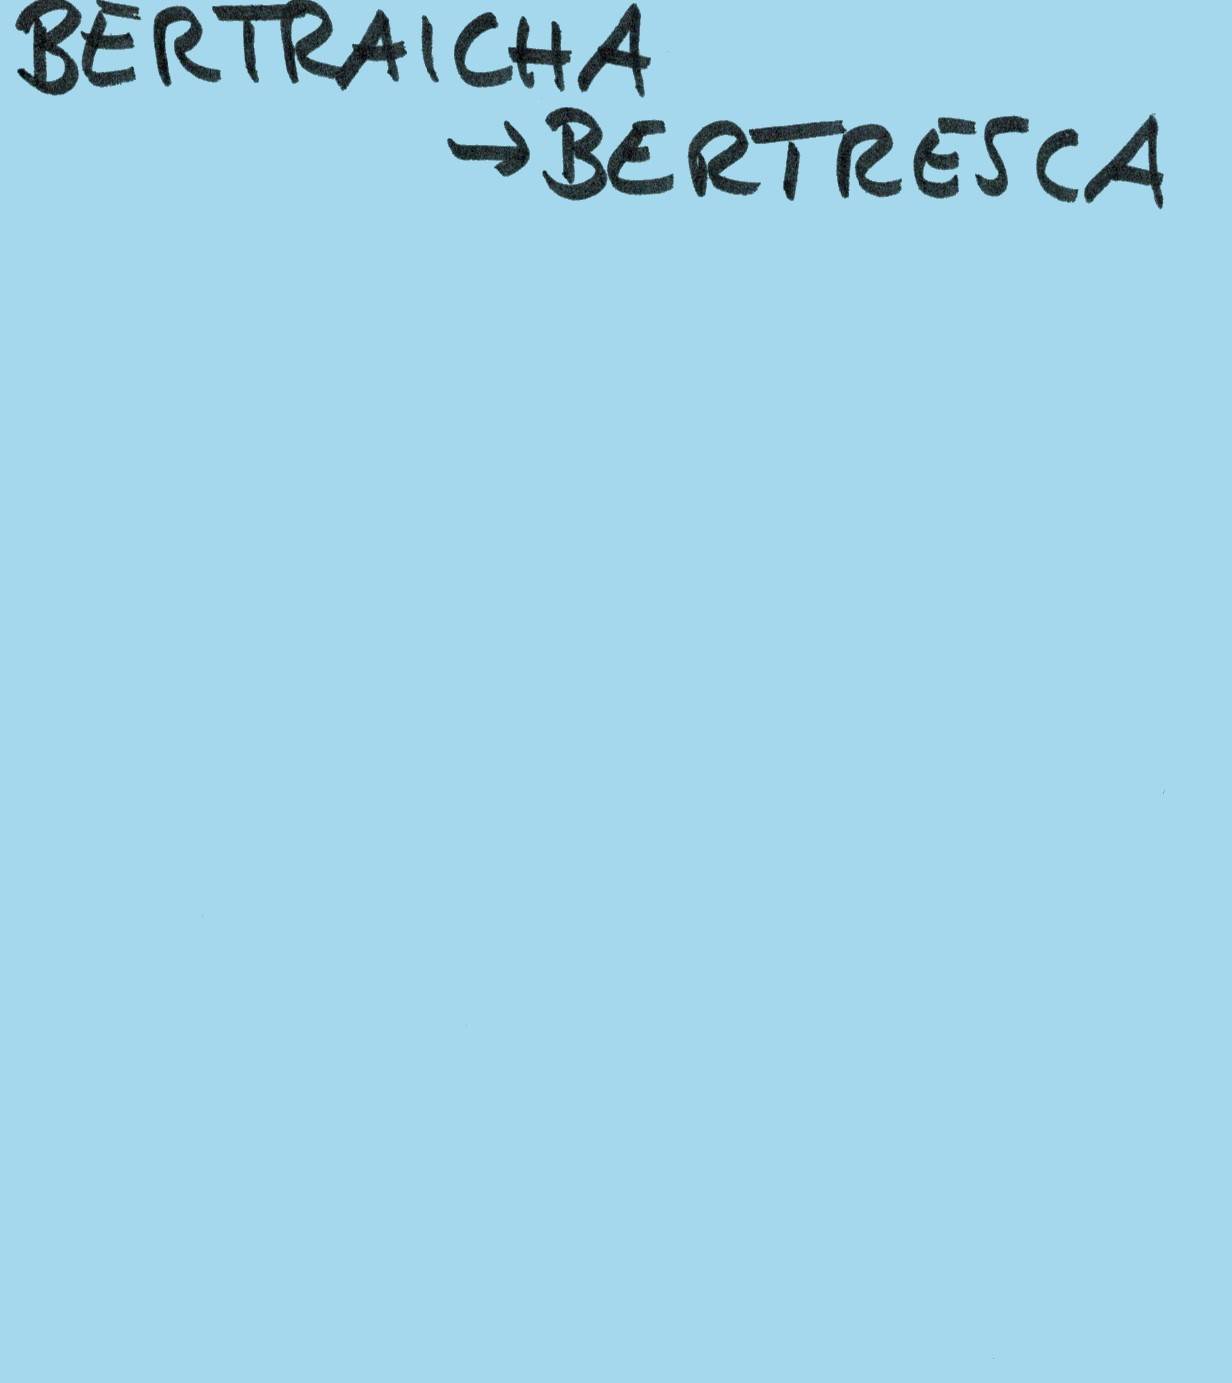 BERTRAICHA
→BERTRESCA